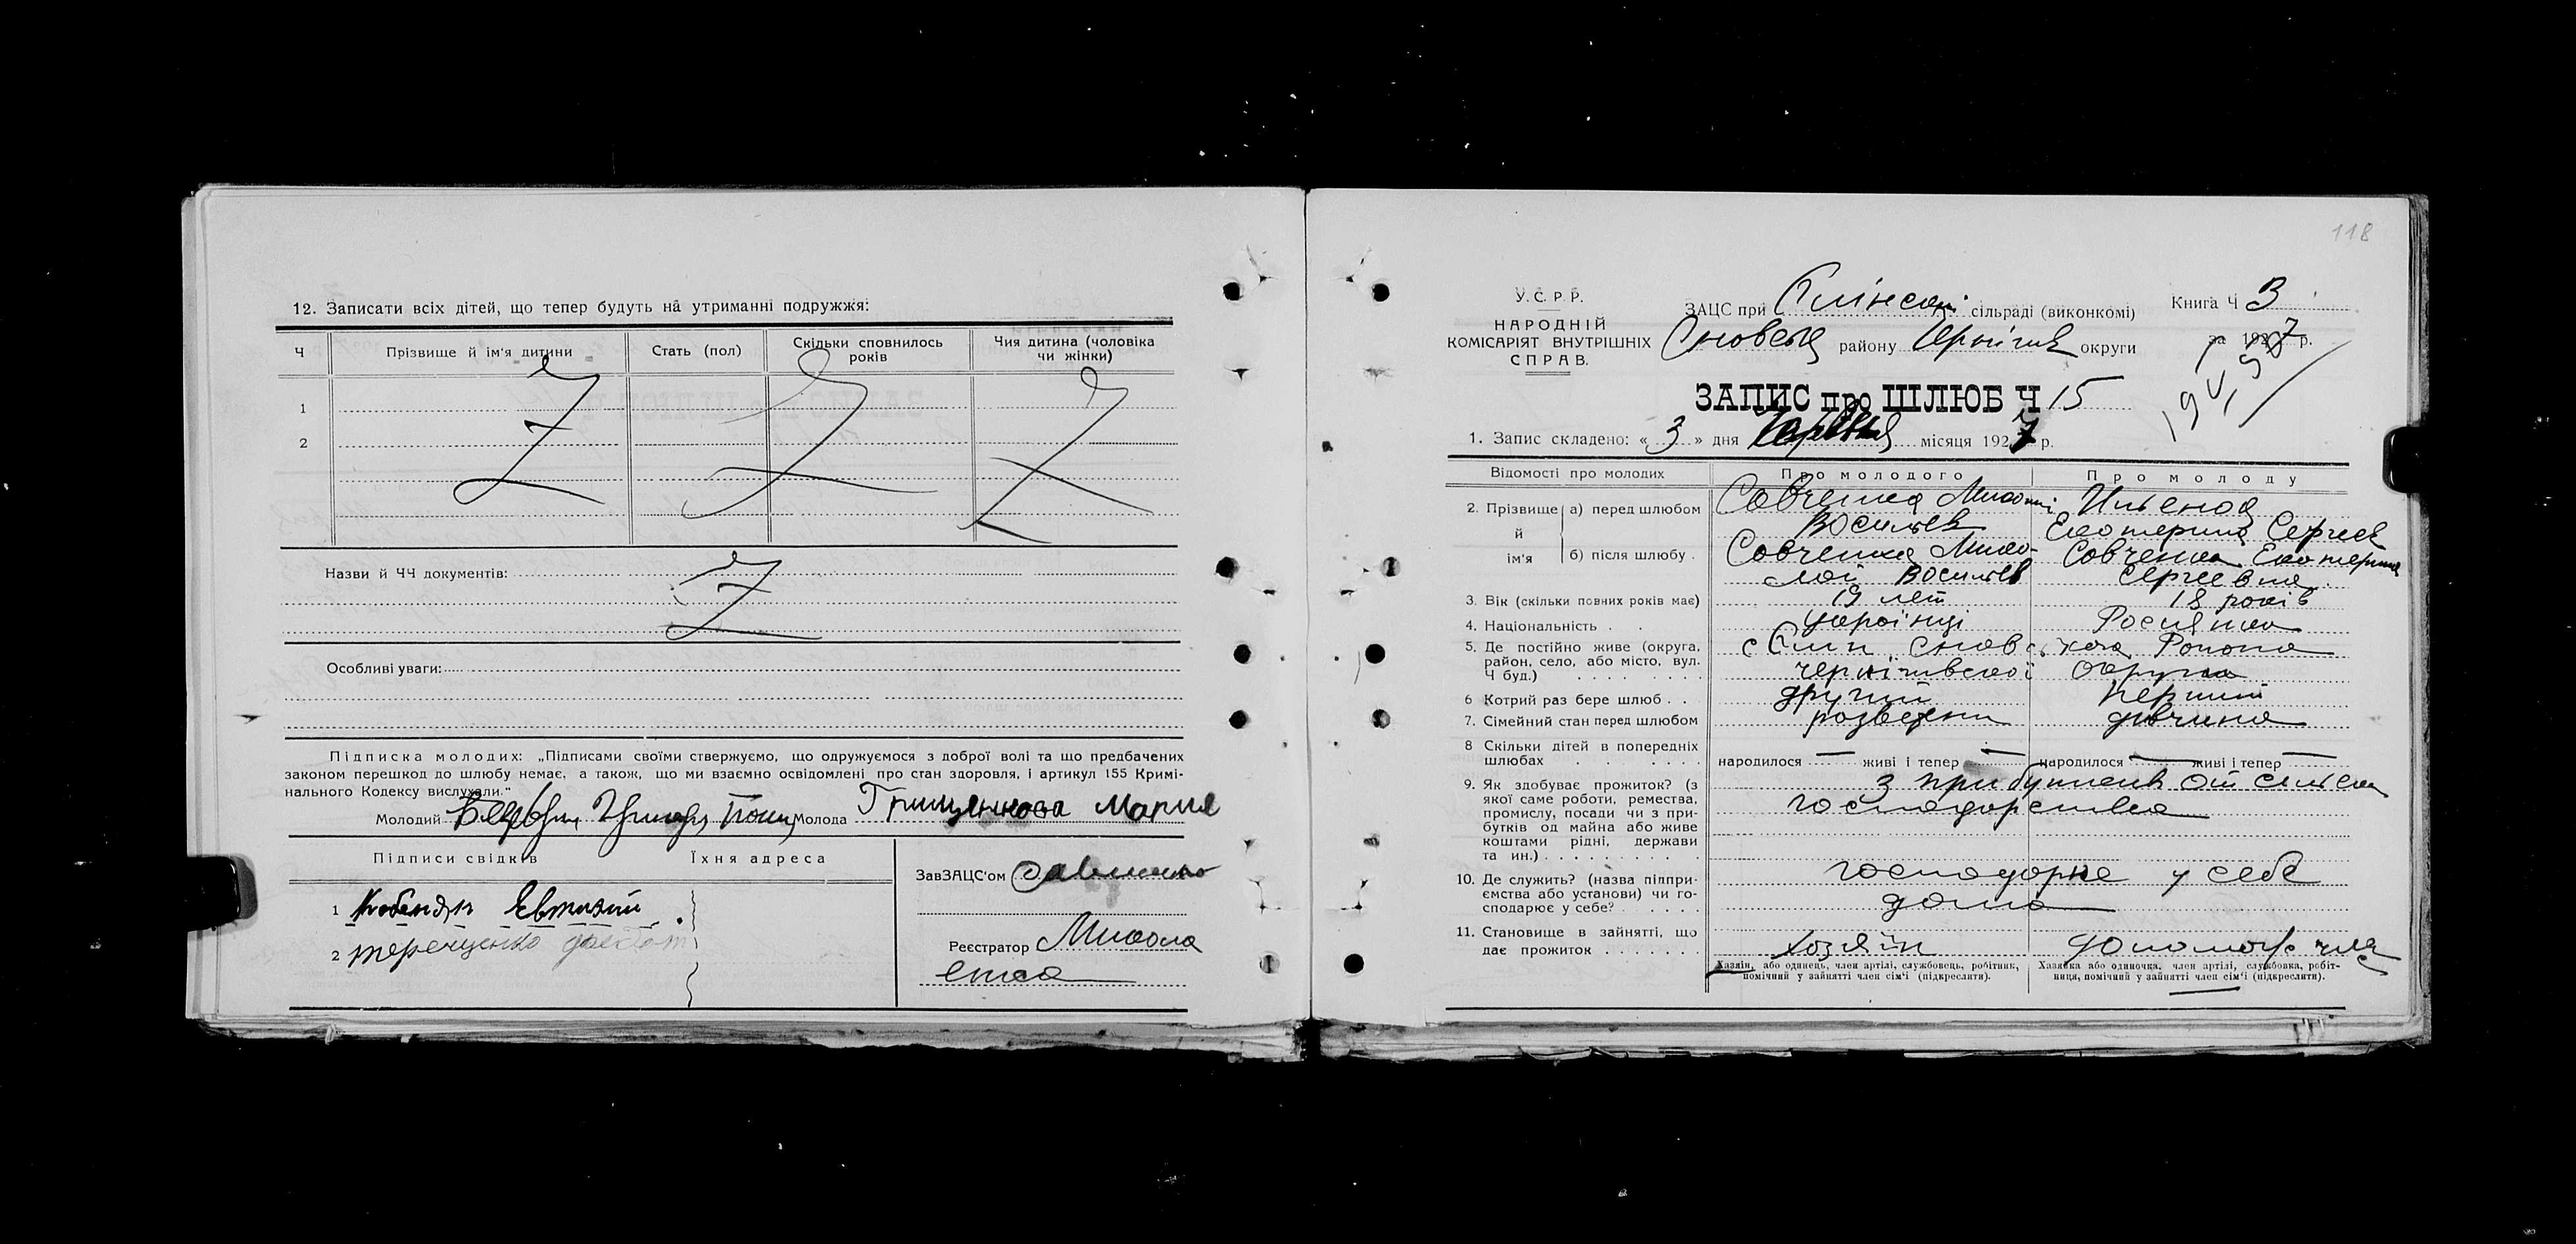 12. Записати всіх дітей, що тепер будуть на утриманні подружжя:
Ч
Прізвище й ім'я дитини
Стать (пол)
Скільки сповнилось років
Чия дитина (чоловіка чи жінки)
1
2
Назви й ЧЧ документів:
Особливі уваги:
Підписка молодих: „Підписами своїми стверджуємо, що одружуємося з доброї волі та що предбачених
законом перешкод до шлюбу немає, а також, що ми взаємно освідомлені про стан здоровля, і артикул 155 Кримі-
нального Кодексу вислухали."
Молодий
Молода Грищенкова Мария
Підписи свідків
Їхня адреса
1
2 терещенко
ЗавЗАЦС'ом
Реєстратор
118
У. С. Р. Р.
НАРОДНІЙ
КОМІСАРІЯТ ВНУТРІШНІХ
СПРАВ.
ЗАЦС при сільраді (виконкомі)
Книга Ч 3
Сновськ району Черніг округи
за 1927 р.
ЗАПИС про ШЛЮБ Ч 15
1. Запис складено: « 3 » дня Червня місяця 1927 р.
Відомості про молодих
Про молодого
Про молоду
2. Прізвище й ім'я
а) перед шлюбом
Савченко
Екатерина Сергеев
б) після шлюбу
Савченко Мико-
лай Васильев
Савченко Екатерина
Сергеевна
3. Вік (скільки повних років має)
19 лет
18 років
4. Національність
українці
Росиянка
5. Де постійно живе (округа,
район, село, або місто, вул.
Ч буд.)
Сновського Района
Чернігівської Округа
6 Котрий раз бере шлюб
другий
перший
7. Сімейний стан перед шлюбом
розведени
дівчина
8 Скільки дітей в попередніх
шлюбах
народилося — живі і тепер —
народилося — живі і тепер —
9. Як здобуває прожиток? (з
якої саме роботи, ремества,
промислу, посади чи з при-
бутків од майна або живе
коштами рідні, держави
та ин.)
з прибутків от сільськ
господарства
10. Де служить? (назва підпри-
ємства або установи) чи го-
сподарює у себе?
господарює у себе
дома
11. Становище в зайнятті, що
дає прожиток
хозяїн
допомог член
Хазяїн, або одинець, член артілі, службовець, робітник,
помічний у зайнятті член сім'ї (підкреслити).
Хазяйка або одиночка, член артілі, службовка, робіт-
ниця, помічний у зайнятті член сім'ї (підкреслити).